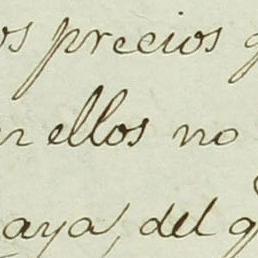 os precios q
en ellos no
aya, del q